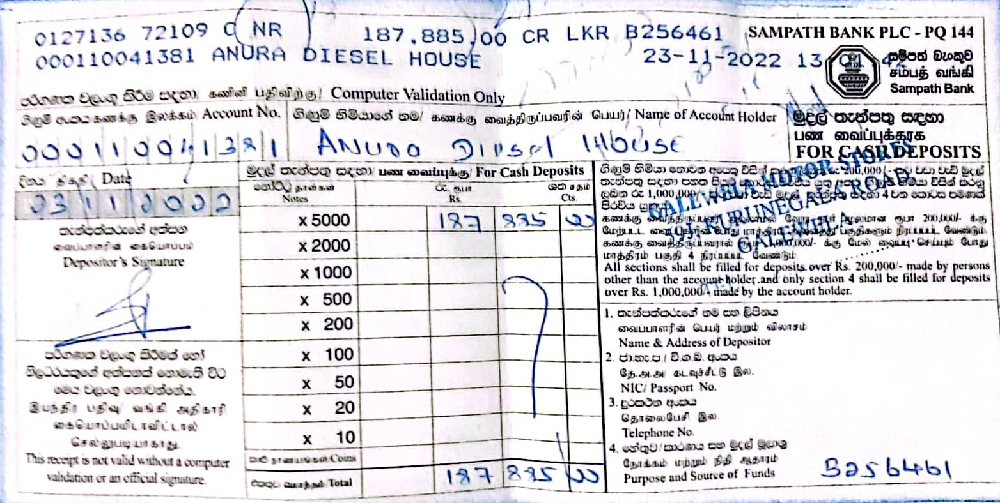 0127136 72109 C NR 187,885.00 CR LKR B256461 SAMPATH BANK PLC - PQ 144
000110041381 ANURA DIESEL HOUSE 23-11-2022 13
සම්පත් බැංකුව
சம்பத் வங்கி
Sampath Bank
පරිගණක වලංගු කිරීම සඳහා, கணினி பதிவிற்கு/ Computer Validation Only
ගිණුම් අංකය கணக்கு இலக்கம் Account No. ගිණුම් හිමියාගේ නම/ கணக்கு வைத்திருப்பவரின் பெயர்/ Name of Account Holder
000110041381 ANURO DIESEL HOUSE
මුදල් තැන්පතු සඳහා
பண வைப்புக்காக
FOR CASH DEPOSITS
දිනය திகதி Date
මුදල් තැන්පතු සඳහා பண வைப்புக்கு/ For Cash Deposits
නෝට්ටු தாள்கள் Notes
රු. ரூபா Rs.
ශත சதம் Cts.
GALEWELA MOTOR STORES
KURUNEGALA ROAD
GALEWELA
x 5000 187 885 00
x 2000
x 1000
x 500
x 200
x 100
x 50
x 20
x 10
Coins
එකතුව மொத்தம் Total 187 885 00
තැන්පත්කරුගේ අත්සන
வைப்பாளரின் கையொப்பம்
Depositor's Signature
පරිගණක වලංගු කිරීමක් හෝ
නිලධරයකුගේ අත්සනක් නොමැති විට
මෙය වලංගු නොවන්නේය.
இயந்திர பதிவு/ வங்கி அதிகாரி
கையொப்பமிடாவிட்டால்
செல்லுபடியாகாது.
This receipt is not valid without a computer
validation or an official signature.
All sections shall be filled for deposits over Rs. 200,000/- made by persons
other than the account holder and only section 4 shall be filled for deposits
over Rs. 1,000,000/- made by the account holder.
1. තැන්පත්කරුගේ නම සහ ලිපිනය
வைப்பாளரின் பெயர் மற்றும் விலாசம்
Name & Address of Depositor
2. ජා.හැ.ප./ වි.ග.බ. අංකය
தே.அ.அ/ கடவுச்சீட்டு இல.
NIC/ Passport No.
3. දුරකථන අංකය
தொலைபேசி இல
Telephone No.
4. හේතුව/කාරණය සහ මුදල් මූලාශ්‍ර
நோக்கம் மற்றும் நிதி ஆதாரம்
Purpose and Source of Funds B256461